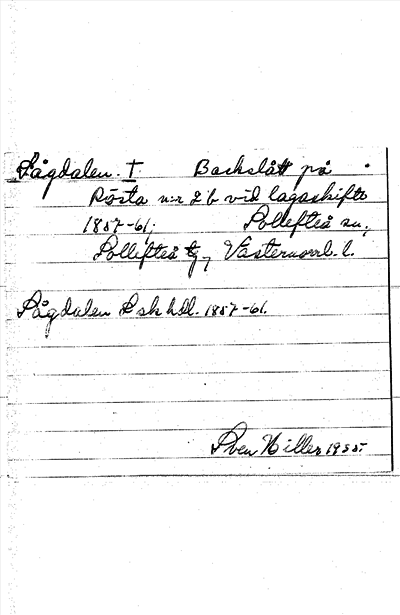 Sågdalen. I Backslått på
Rösta n:r 2 b vid lagaskifte
1857-61; Sollefteå sn;
Sollefteå tg, Västernorrl. l.
Sågdalen Lskhdl. 1857-61.
Sven Hiller 1935.